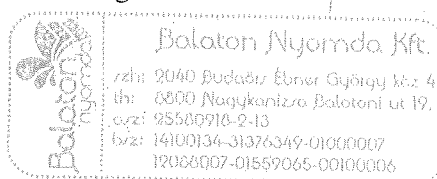 Balaton
nyomda
Balaton Nyomda Kft.
szh: 2040 Budaörs Ebner György köz 4
th: 8800 Nagykanizsa Balatoni út 19.
asz: 25580918-2-13
bsz: 14100134-31376349-01000007
12088007-01559065-00100006